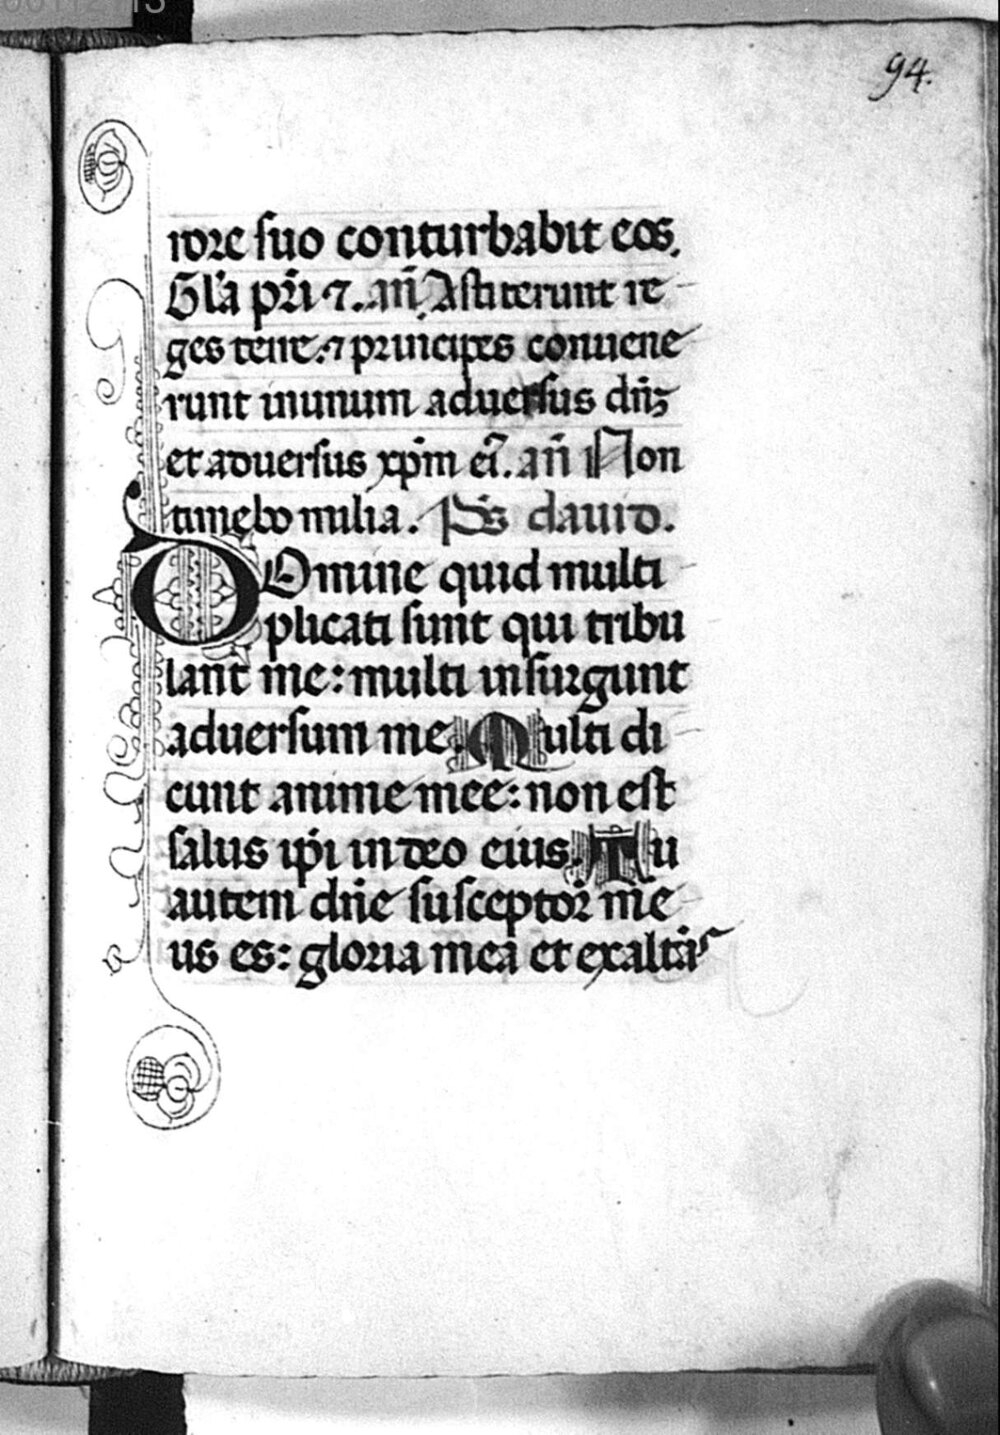 94.
rore suo conturbabit eos.
Gl̃a pr̃i ⁊. añ. Astiterunt re
ges terre. ⁊ principes conuene
runt inunum aduersus dñꝫ
et aduersus xp̃m eĩ. añ Non
timebo milia. Ps̃ dauid.
Domine quid multi
plicati sunt qui tribu
lant me: multi insurgunt
aduersum me. Multi di
cunt anime mee: non est
salus ip̃i in deo eius. Tu
autem dñe susceptor me
us es: gloria mea et exaltãs